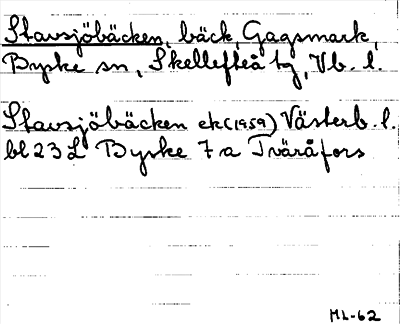 Stavsjöbäcken, bäck, Gagsmark,
Byske sn, Skellefteå tg, Vb. l.
Stavsjöbäcken ek(1959) Västerb. l.
bl 23 L Byske 7 a Tväråfors
ML-62